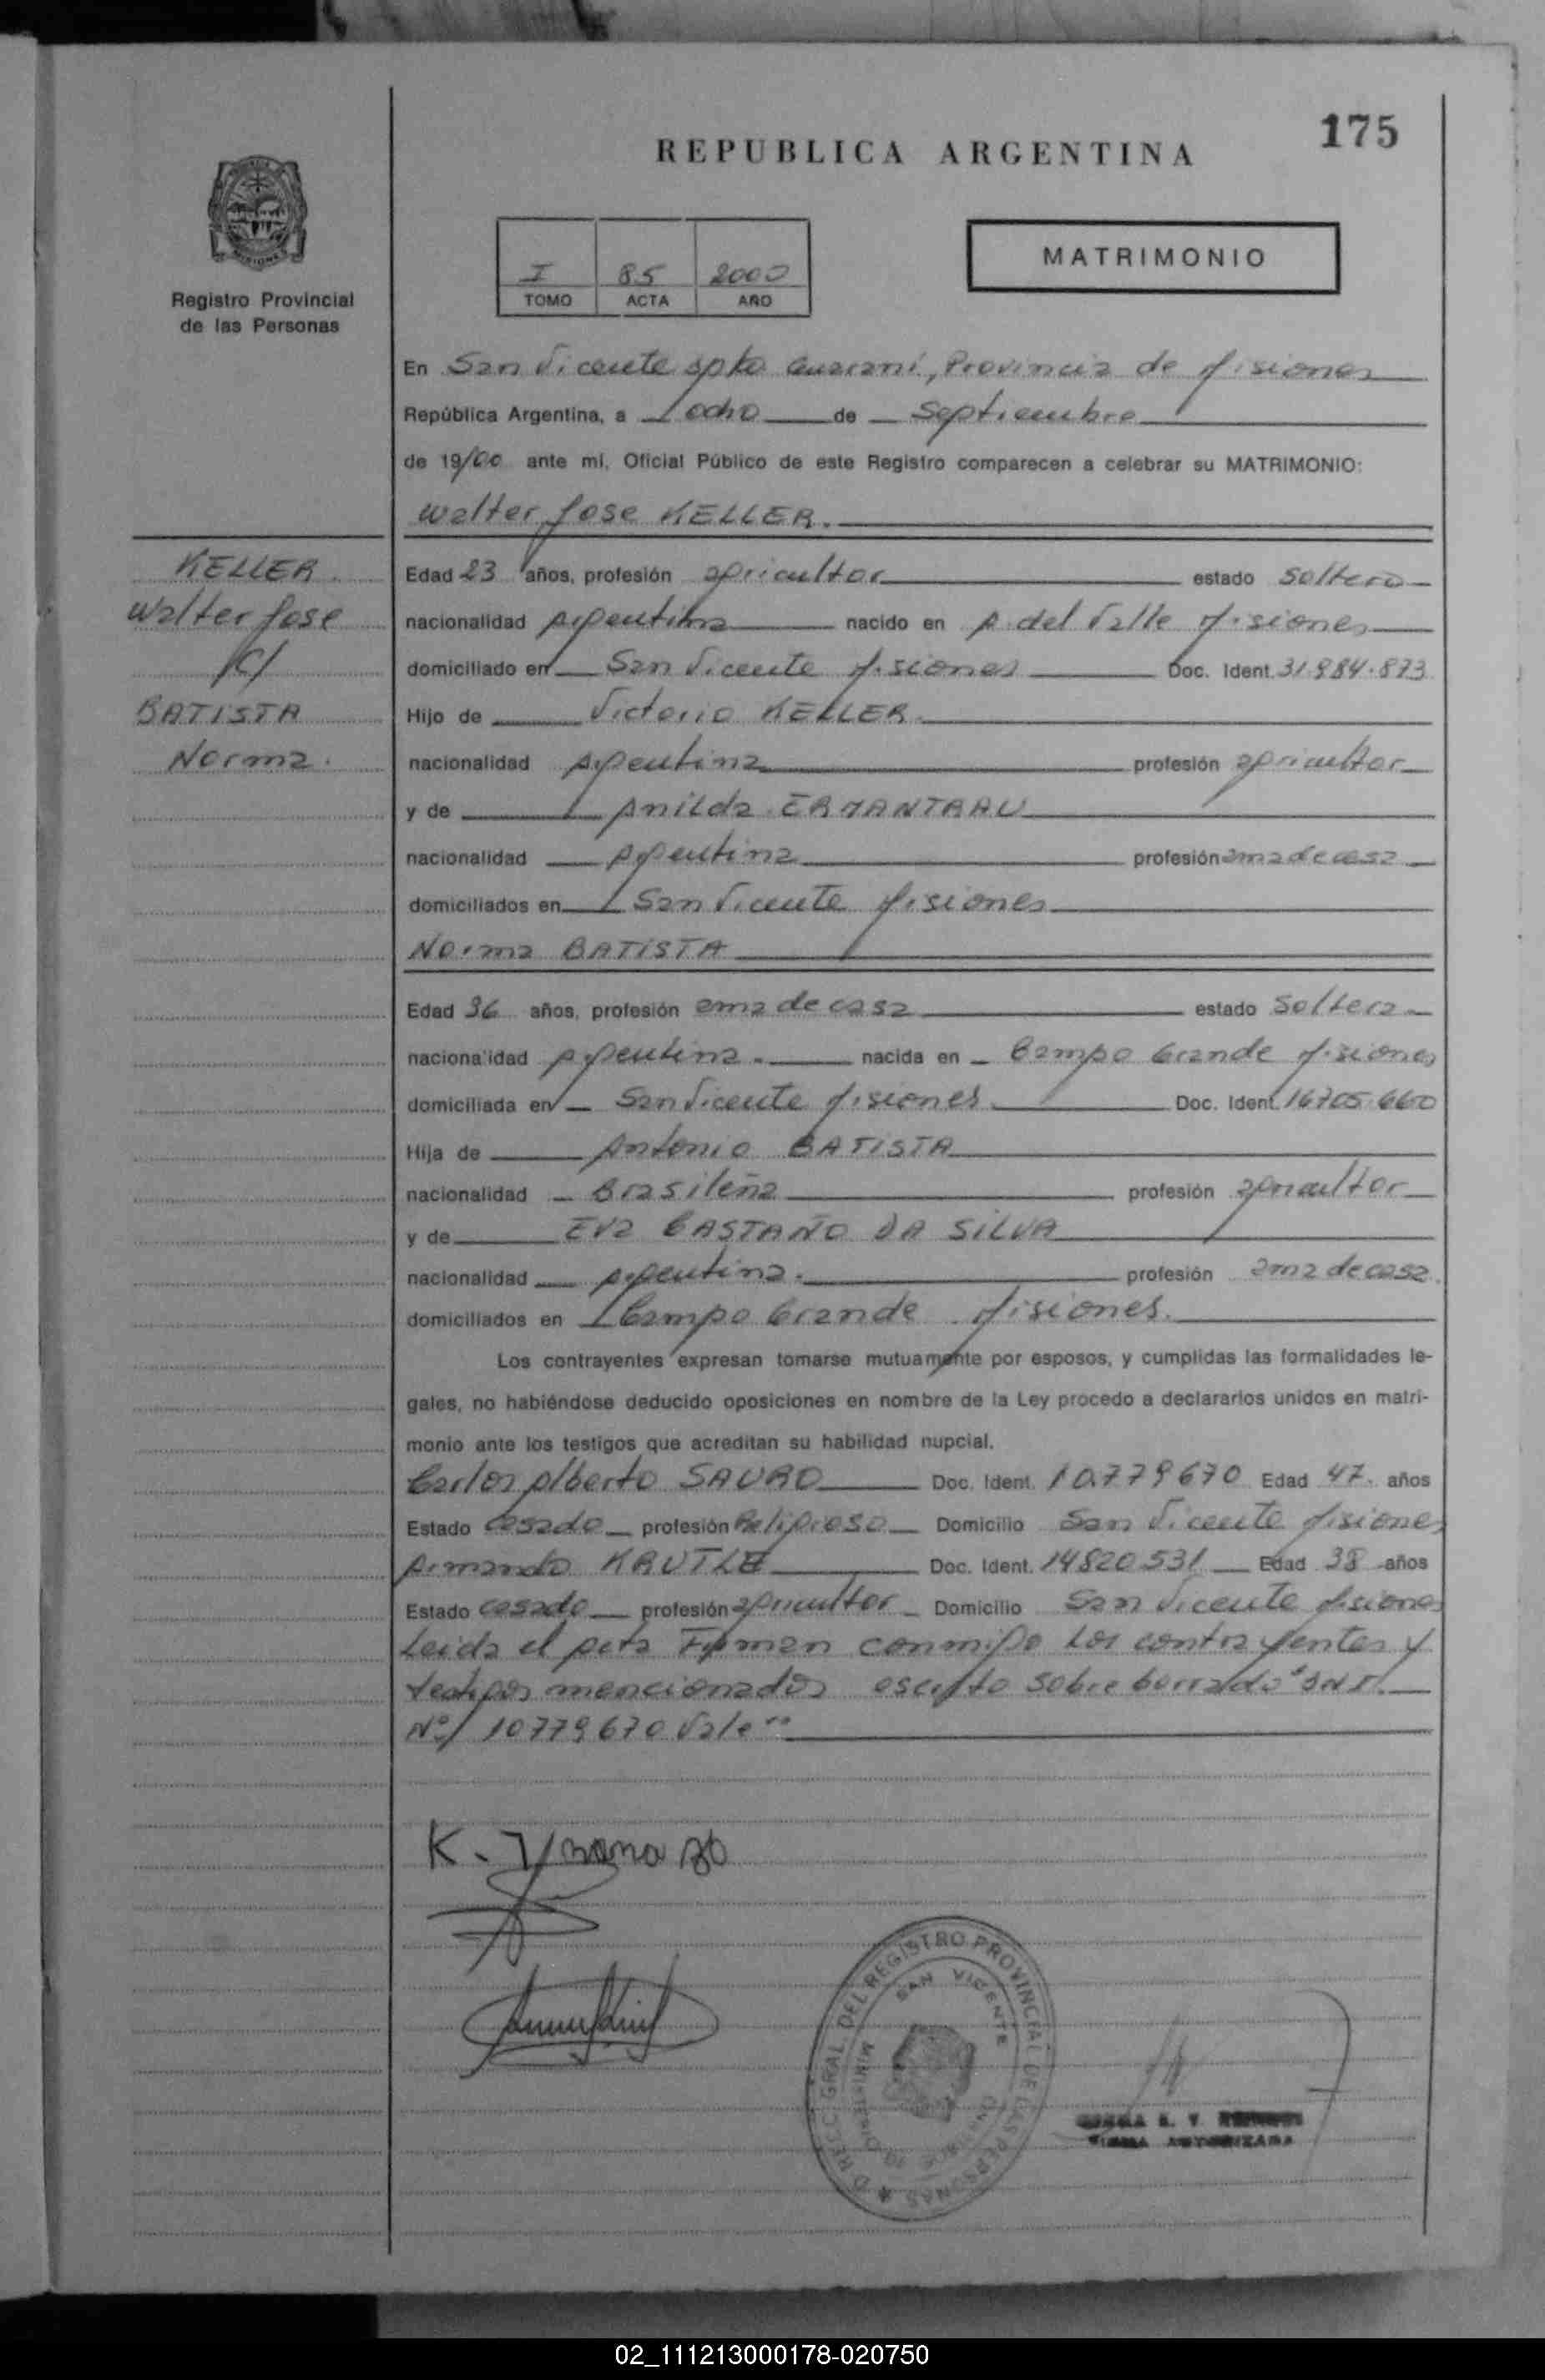 175
REPUBLICA ARGENTINA
MATRIMONIO
I 85 2000
TOMO ACTA AÑO
Registro Provincial
de las Personas
En San Vicente Dpto Guaraní, Provincia de Misiones
República Argentina, a ocho de Septiembre
de 19/00 ante mi, Oficial Público de este Registro comparecen a celebrar su MATRIMONIO:
Walter Jose KELLER.
KELLER.
Walter Jose
C/
BATISTA
Norma.
Edad 23 años, profesión agricultor estado soltero
nacionalidad Argentina nacido en A. del Valle Misiones
domiciliado en San Vicente Misiones Doc. Ident. 31.984.873
Hijo de Victorio KELLER
nacionalidad Argentina profesión agricultor
y de Anilda ERMANTRAU
nacionalidad Argentina profesión ama de casa
domiciliados en San Vicente Misiones
Norma BATISTA
Edad 36 años, profesión ama de casa estado soltera
nacionalidad Argentina nacida en Campo Grande Misiones
domiciliada en San Vicente Misiones Doc. Ident. 16705.660
Hija de Antonio BATISTA
nacionalidad Brasileña profesión agricultor
y de Eva CASTAÑO DA SILVA
nacionalidad Argentina. profesión ama de casa
domiciliados en Campo Grande Misiones.
Los contrayentes expresan tomarse mutuamente por esposos, y cumplidas las formalidades le-
gales, no habiéndose deducido oposiciones en nombre de la Ley procedo a declararlos unidos en matri-
monio ante los testigos que acreditan su habilidad nupcial.
Carlos Alberto SAURO Doc. Ident. 10.779670 Edad 47. años
Estado casado profesión Religioso Domicilio San Vicente Misiones
Armando KRUTLE Doc. Ident. 14820531 Edad 38 años
Estado casado profesión agricultor Domicilio San Vicente Misiones
Leida el Acta Firman conmigo los contrayentes y
testigos mencionados escrito sobre borrado "DNI.
Nº/ 10779670 Vale"
K.
DIRECC. GRAL. DEL REGISTRO PROVINCIAL DE LAS PERSONAS
SAN VICENTE
FIRMA AUTORIZADA
02_111213000178-020750